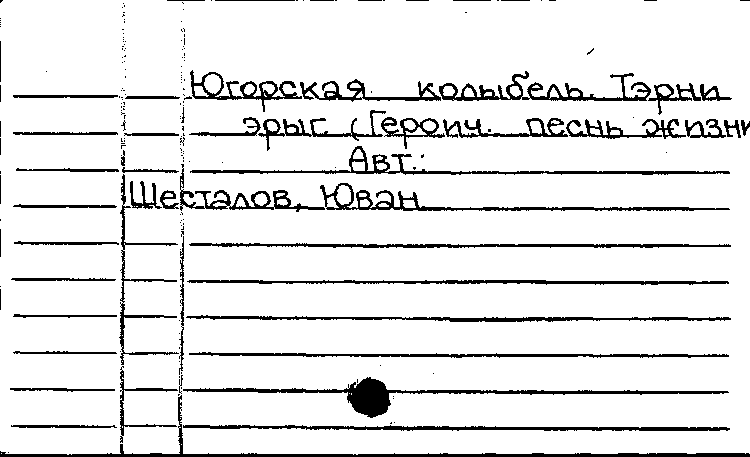 Югорская колыбель. Тэрни
эрыг. (Героич. песнь жизни
Авт.:
Шесталов, Юван